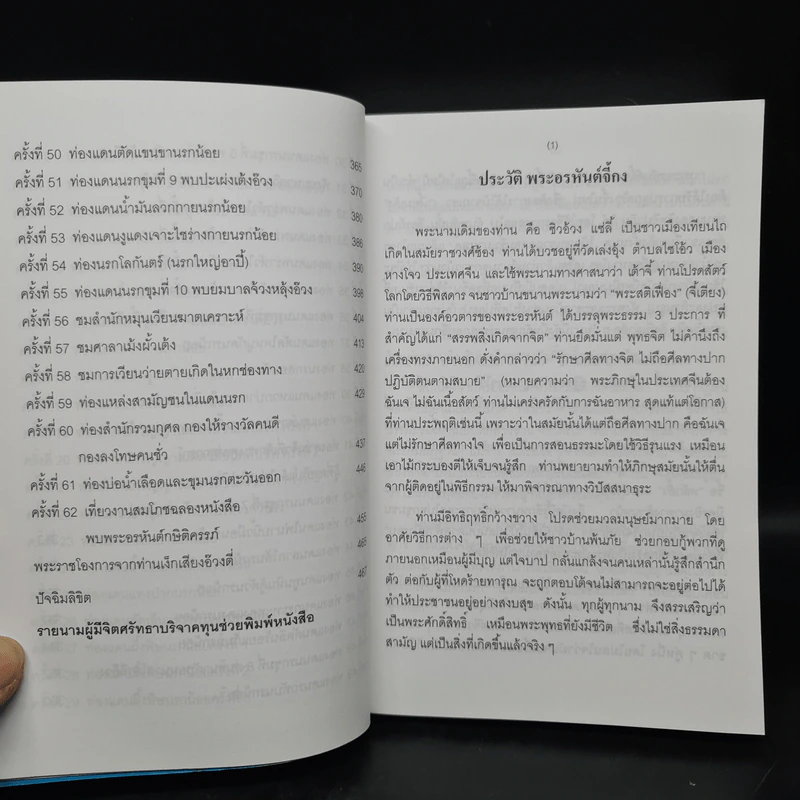 ครั้งที่ 50 ท่องแดนตัดแขนขานรกน้อย 365
ครั้งที่ 51 ท่องแดนนรกขุมที่ 9 พบปะเผ่งเต้งอ๊วง 370
ครั้งที่ 52 ท่องแดนน้ำมันลวกกายนรกน้อย 380
ครั้งที่ 53 ท่องแดนงูแดงเจาะไชร่างกายนรกน้อย 386
ครั้งที่ 54 ท่องนรกโลกันตร์ (นรกใหญ่อาปี๋) 390
ครั้งที่ 55 ท่องแดนนรกขุมที่ 10 พบยมบาลจ้วงหลุ้งอ๊วง 398
ครั้งที่ 56 ชมสำนักหมุนเวียนฆาตเคราะห์ 404
ครั้งที่ 57 ชมศาลาเม้งผั้วเต้ง 413
ครั้งที่ 58 ชมการเวียนว่ายตายเกิดในหกช่องทาง 420
ครั้งที่ 59 ท่องแหล่งสามัญชนในแดนนรก 429
ครั้งที่ 60 ท่องสำนักรวมกุศล กองให้รางวัลคนดี
กองลงโทษคนชั่ว 437
ครั้งที่ 61 ท่องบ่อน้ำเลือดและขุมนรกตะวันออก 446
ครั้งที่ 62 เที่ยวงานสมโภชฉลองหนังสือ
พบพระอรหันต์กษิติครรภ์ 455
พระราชโองการจากท่านเง็กเสียงอ๊วงตี่ 465
ปัจฉิมลิขิต 467
รายนามผู้มีจิตศรัทธาบริจาคทุนช่วยพิมพ์หนังสือ
(1)
ประวัติ พระอรหันต์จี้กง
พระนามเดิมของท่าน คือ ซิวอ้วง แซ่ลี้ เป็นชาวเมืองเทียนไถ
เกิดในสมัยราชวงศ์ซ้อง ท่านได้บวชอยู่ที่วัดเล่งอุ้ง ตำบลไซโอ้ว เมือง
หางโจว ประเทศจีน และใช้พระนามทางศาสนาว่า เต้าจี้ ท่านโปรดสัตว์
โลกโดยวิธีพิสดาร จนชาวบ้านขนานพระนามว่า “พระสติเฟื่อง” (จี้เตียง)
ท่านเป็นองค์อวตารของพระอรหันต์ ได้บรรลุพระธรรม 3 ประการ ที่
สำคัญได้แก่ “สรรพสิ่งเกิดจากจิต” ท่านยึดมั่นแต่ พุทธจิต ไม่คำนึงถึง
เครื่องทรงภายนอก ดั่งคำกล่าวว่า “รักษาศีลทางจิต ไม่ถือศีลทางปาก
ปฏิบัติตนตามสบาย” (หมายความว่า พระภิกษุในประเทศจีนต้อง
ฉันเจ ไม่ฉันเนื้อสัตว์ ท่านไม่เคร่งครัดกับการฉันอาหาร สุดแท้แต่โอกาส)
ที่ท่านประพฤติเช่นนี้ เพราะว่าในสมัยนั้นได้แต่ถือศีลทางปาก คือฉันเจ
แต่ไม่รักษาศีลทางใจ เพื่อเป็นการสอนธรรมะโดยใช้วิธีรุนแรง เหมือน
เอาไม้กระบองตีให้เจ็บจนรู้สึก ท่านพยายามทำให้ภิกษุสมัยนั้นให้ตื่น
จากผู้ติดอยู่ในพิธีกรรม ให้มาพิจารณาทางวิปัสสนาธุระ
ท่านมีอิทธิฤทธิ์กว้างขวาง โปรดช่วยมวลมนุษย์มากมาย โดย
อาศัยวิธีการต่าง ๆ เพื่อช่วยให้ชาวบ้านพ้นภัย ช่วยกอบกู้พวกที่ดู
ภายนอกเหมือนผู้มีบุญ แต่ใจบาป กลั่นแกล้งจนคนเหล่านั้นรู้สึกสำนึก
ตัว ต่อกับผู้ที่โหดร้ายทารุณ จะถูกตอบโต้จนไม่สามารถจะอยู่ต่อไปได้
ทำให้ประชาชนอยู่อย่างสงบสุข ดังนั้น ทุกผู้ทุกนาม จึงสรรเสริญว่า
เป็นพระศักดิ์สิทธิ์ เหมือนพระพุทธที่ยังมีชีวิต ซึ่งไม่ใช่สิ่งธรรมดา
สามัญ แต่เป็นสิ่งที่เกิดขึ้นแล้วจริง ๆ